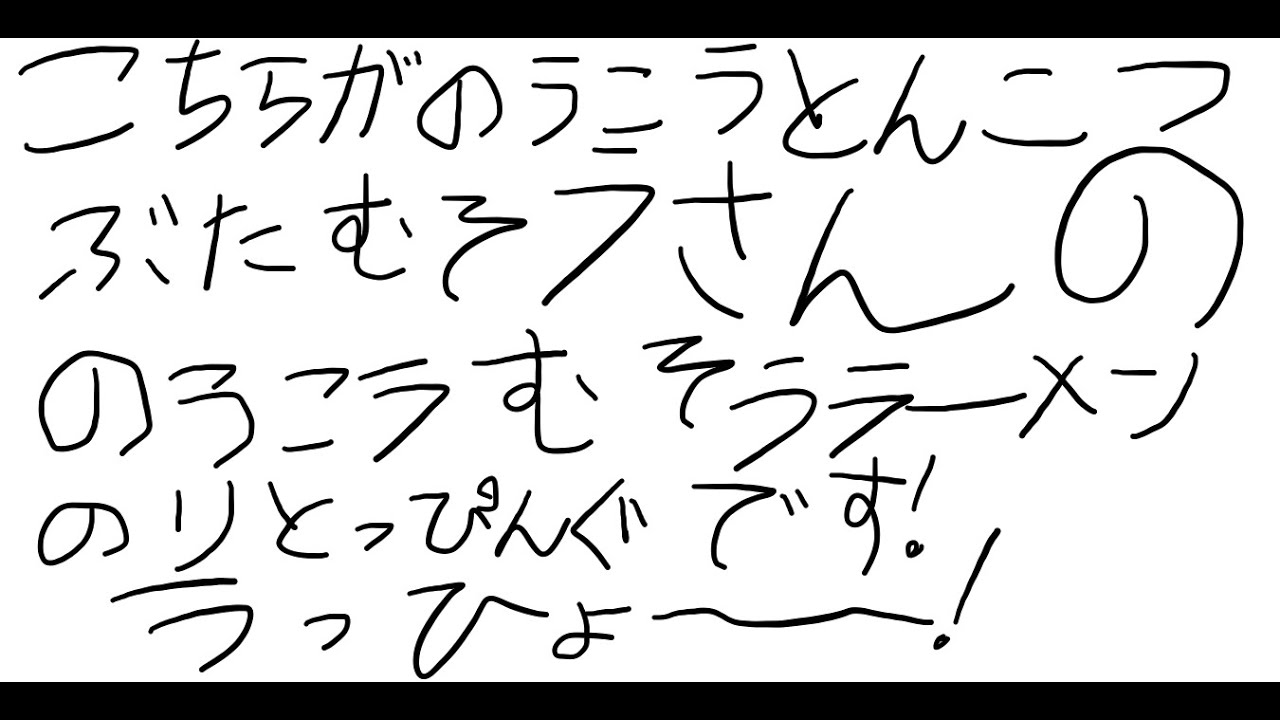 こちらがのうこうとんこつ
ぶたむそうさんの
のうこうむそうラーメン
のりとっぴんぐです!
うっひょ〜!